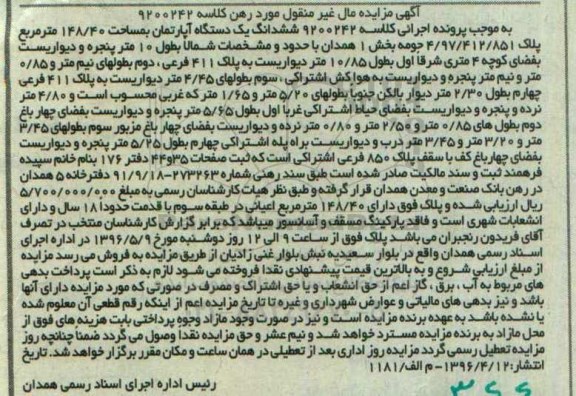 آگهی مزایده مال غیر منقول مورد رهن کلاسه ۹۲۰۰۲۴۲
به موجب پرونده اجرائی کلاسه ۹۲۰۰۲۴۲ ششدانگ یک دستگاه آپارتمان بمساحت ۱۴۸/۴۰ مترمربع
پلاک ۴/۹۷/۴۱۲/۸۵۱ حومه بخش ۱ همدان با حدود و مشخصات شمالاً بطول ۱۰ متر پنجره و دیواریست
بفضای کوچه ۴ متری شرقا اول بطول ۱۰/۸۵ متر دیواریست به پلاک ۴۱۱ فرعی ، دوم بطولهای نیم متر و ۰/۸۵
متر و نیم متر پنجره و دیواریست به هواکش اشتراکی ، سوم بطولهای ۴/۴۵ متر دیواریست به پلاک ۴۱۱ فرعی
چهارم بطول ۲/۳۰ متر دیوار بالکن جنوباً بطولهای ۵/۲۰ متر و ۱/۶۵ متر که غربی محسوب است و ۴/۸۰ متر
نرده و پنجره و دیواریست بفضای حیاط اشتراکی غرباً اول بطول ۵/۶۵ متر پنجره و دیواریست بفضای چهار باغ
دوم بطول های ۰/۸۵ متر و ۲/۵۰ متر و ۰/۸۰ متر نرده و دیواریست بفضای چهار باغ مزبور سوم بطولهای ۳/۴۵
متر و ۳/۲۰ متر و ۳/۴۵ متر درب و دیواریست براه پله اشتراکی چهارم بطول ۵/۲۵ متر پنجره و دیواریست
بفضای چهارباغ کف با سقف پلاک ۸۵۰ فرعی اشتراکی است که ثبت صفحات ۳۵و۴۴ دفتر ۱۷۶ بنام خانم سپیده
فرهمند ثبت و سند مالکیت صادر شده است طبق سند رهنی شماره ۲۷۳۲۶۳-۹۱/۹/۱۸ دفترخانه ۵ همدان
در رهن بانک صنعت و معدن همدان قرار گرفته و طبق نظر هیات کارشناسان رسمی به مبلغ ۵/۷۰۰/۰۰۰/۰۰۰
ریال ارزیابی شده و پلاک فوق دارای ۱۴۸/۴۰ مترمربع اعیانی در طبقه سوم با قدمت حدوداً ۱۸ سال و دارای
انشعابات شهری است و فاقد پارکینگ مسقف و آسانسور میباشد که برابر گزارش کارشناسان منتخب در تصرف
آقای فریدون رنجبران می باشد پلاک فوق از ساعت ۹ الی ۱۲ روز دوشنبه مورخ ۱۳۹۶/۵/۹ در اداره اجرای
اسناد رسمی همدان واقع در بلوار سعیدیه نبش بلوار غنی زادیان از طریق مزایده به فروش می رسد مزایده
از مبلغ ارزیابی شروع و به بالاترین قیمت پیشنهادی نقدا فروخته می شود لازم به ذکر است پرداخت بدهی
های مربوط به آب ، برق ، گاز اعم از حق انشعاب و یا حق اشتراک و مصرف در صورتی که مورد مزایده دارای آنها
باشد و نیز بدهی های مالیاتی و عوارض شهرداری و غیره تا تاریخ مزایده اعم از اینکه رقم قطعی آن معلوم شده
یا نشده باشد به عهده برنده مزایده است و نیز در صورت وجود مازاد وجوه پرداختی بابت هزینه های فوق از
محل مازاد به برنده مزایده مسترد خواهد شد و نیم عشر و حق مزایده نقدا وصول می گردد ضمنا چنانچه روز
مزایده تعطیل رسمی گردد مزایده روز اداری بعد از تعطیلی در همان ساعت و مکان مقرر برگزار خواهد شد. تاریخ
انتشار:۱۳۹۶/۴/۱۲-م الف/۱۱۸۱
رئیس اداره اجرای اسناد رسمی همدان
۳۶۶